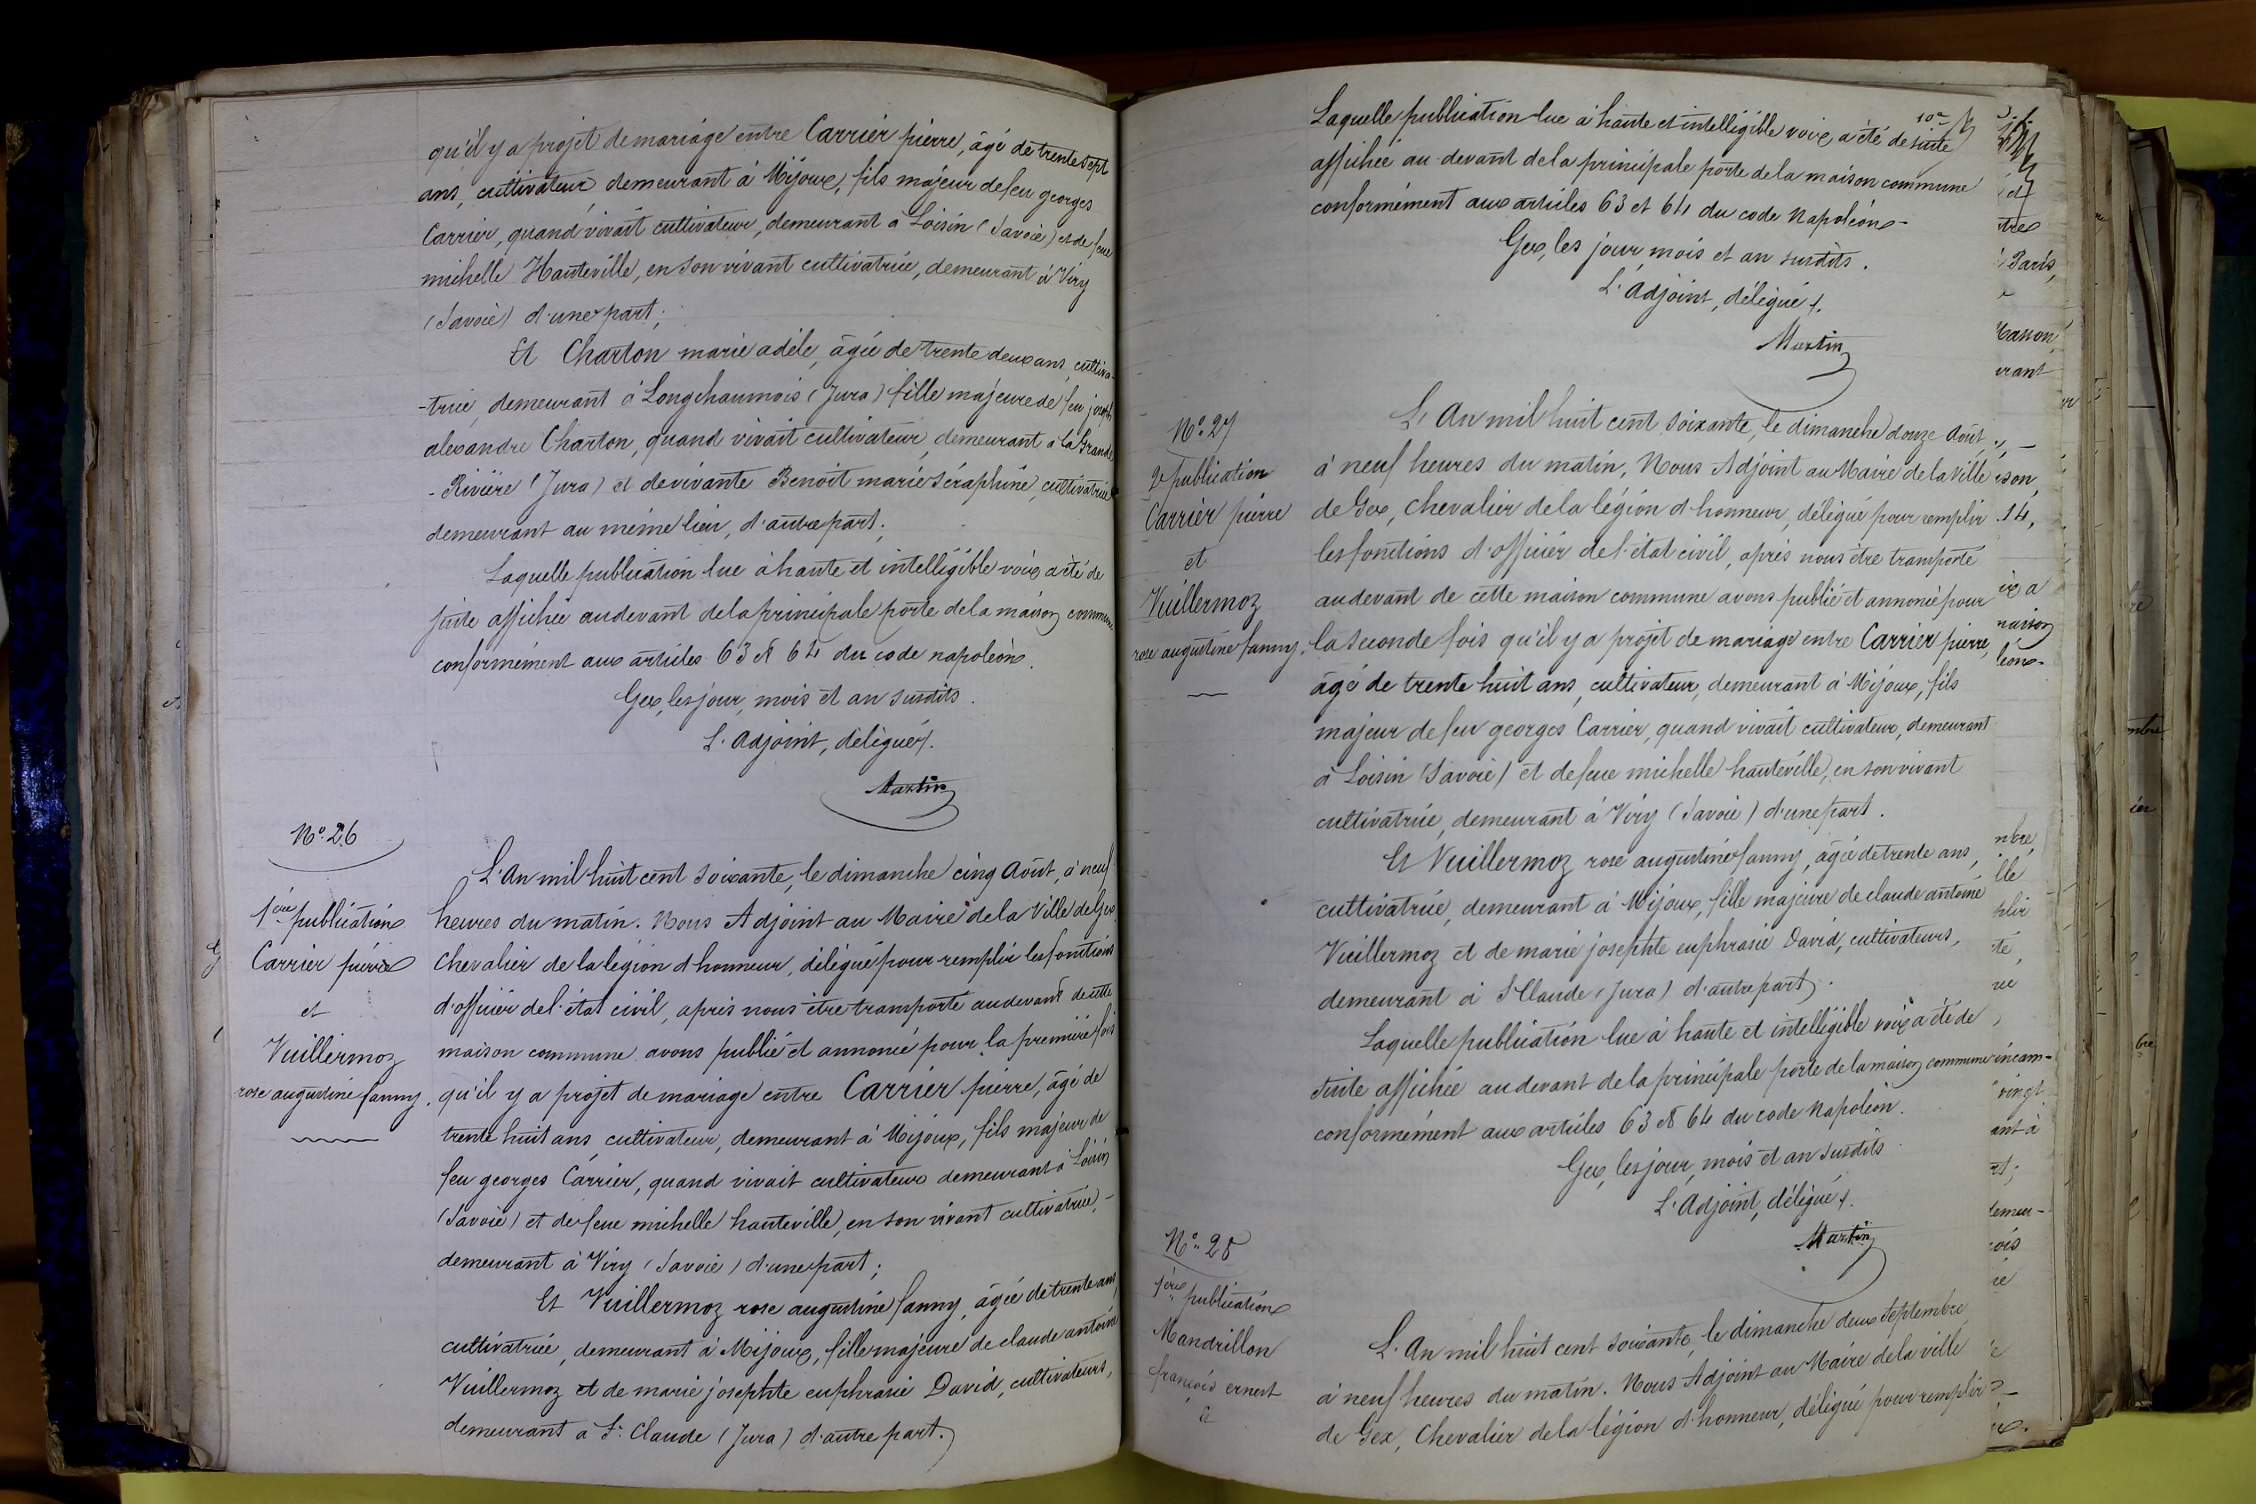 qu'il y a projet de mariage entre Carrier pierre, âgé de trente sept
ans, cultivateur, demeurant à Mijoux, fils majeur de feu georges
Carrier, quand vivait cultivateur, demeurant à Loisin (Savoie) et de feue
michelle Hauteville, en son vivant cultivatrice, demeurant à Viry
(Savoie) d'une part;
Et Charton marie adèle, âgée de trente deux ans, cultiva-
-trice, demeurant à Longchaumois (Jura) fille majeure de feu joseph
alexandre Charton, quand vivait cultivateur, demeurant à la Grande
-Rivière (Jura) et de vivante Benoit marie Séraphine, cultivatrice
demeurant au même lieu, d'autre part;
Laquelle publication lue à haute et intelligible voix a été de
suite affichée au devant de la principale porte de la maison commune
conformément aux articles 63 et 64 du code napoléon.
Gex, les jour, mois et an susdits.
L'adjoint, délégué.
Martin
N° 26
1ère publication
Carrier pierre
et
Vuillermoz
rose augustine fanny.
L'An mil huit cent soixante, le dimanche cinq Août, à neuf
heures du matin. Nous Adjoint au Maire de la Ville de Gex
Chevalier de la légion d'honneur, délégué pour remplir les fonctions
d'officier de l'état civil, après nous être transporté au devant de cette
maison commune avons publié et annoncé pour la première fois
qu'il y a projet de mariage entre Carrier pierre, âgé de
trente huit ans, cultivateur, demeurant à Mijoux, fils majeur de
feu georges Carrier, quand vivait cultivateur demeurant à Loisin
(Savoie) et de feue michelle hauteville, en son vivant cultivatrice,-
demeurant à Viry (Savoie) d'une part;
Et Vuillermoz rose augustine fanny, âgée de trente ans,
cultivatrice, demeurant à Mijoux, fille majeure de claude antoine
Vuillermoz et de marie josephte euphrasie David, cultivateurs,
demeurant à St Claude (Jura) d'autre part.
Laquelle publication lue à haute et intelligible voix a été de suite
affichée au-devant de la principale porte de la maison commune
conformément aux articles 63 et 64 du code Napoléon-
Gex, les jour, mois et an susdits.
L'adjoint, délégué.
Martin
N° 27
2e publication
Carrier pierre
et
Vuillermoz
rose augustine fanny.
L'An mil huit cent soixante, le dimanche douze Août,
à neuf heures du matin, Nous Adjoint au Maire de la Ville
de Gex, Chevalier de la légion d'honneur, délégué pour remplir
les fonctions d'officier de l'état civil, après nous être transporté
au devant de cette maison commune avons publié et annoncé pour
la seconde fois qu'il y a projet de mariage entre Carrier pierre,
âgé de trente huit ans, cultivateur, demeurant à Mijoux, fils
majeur de feu georges Carrier, quand vivait cultivateur, demeurant
à Loisin (Savoie) et de feue michelle hauteville, en son vivant
cultivatrice, demeurant à Viry (Savoie) d'une part.
Et Vuillermoz rose augustine fanny, âgée de trente ans,
cultivatrice, demeurant à Mijoux, fille majeure de claude antoine
Vuillermoz et de marie josephte euphrasie David, cultivateurs,
demeurant à St Claude (Jura) d'autre part.
Laquelle publication lue à haute et intelligible voix a été de
suite affichée au devant de la principale porte de la maison commune
conformément aux articles 63 et 64 du code Napoléon.
Gex, les jour, mois et an susdits
L'Adjoint, délégué.
Martin
N° 28
1ère publication
Mandrillon
françois ernest
L'An mil huit cent soixante, le dimanche deux Septembre
à neuf heures du matin. Nous Adjoint au Maire de la ville
de Gex, Chevalier de la légion d'honneur, délégué pour remplir